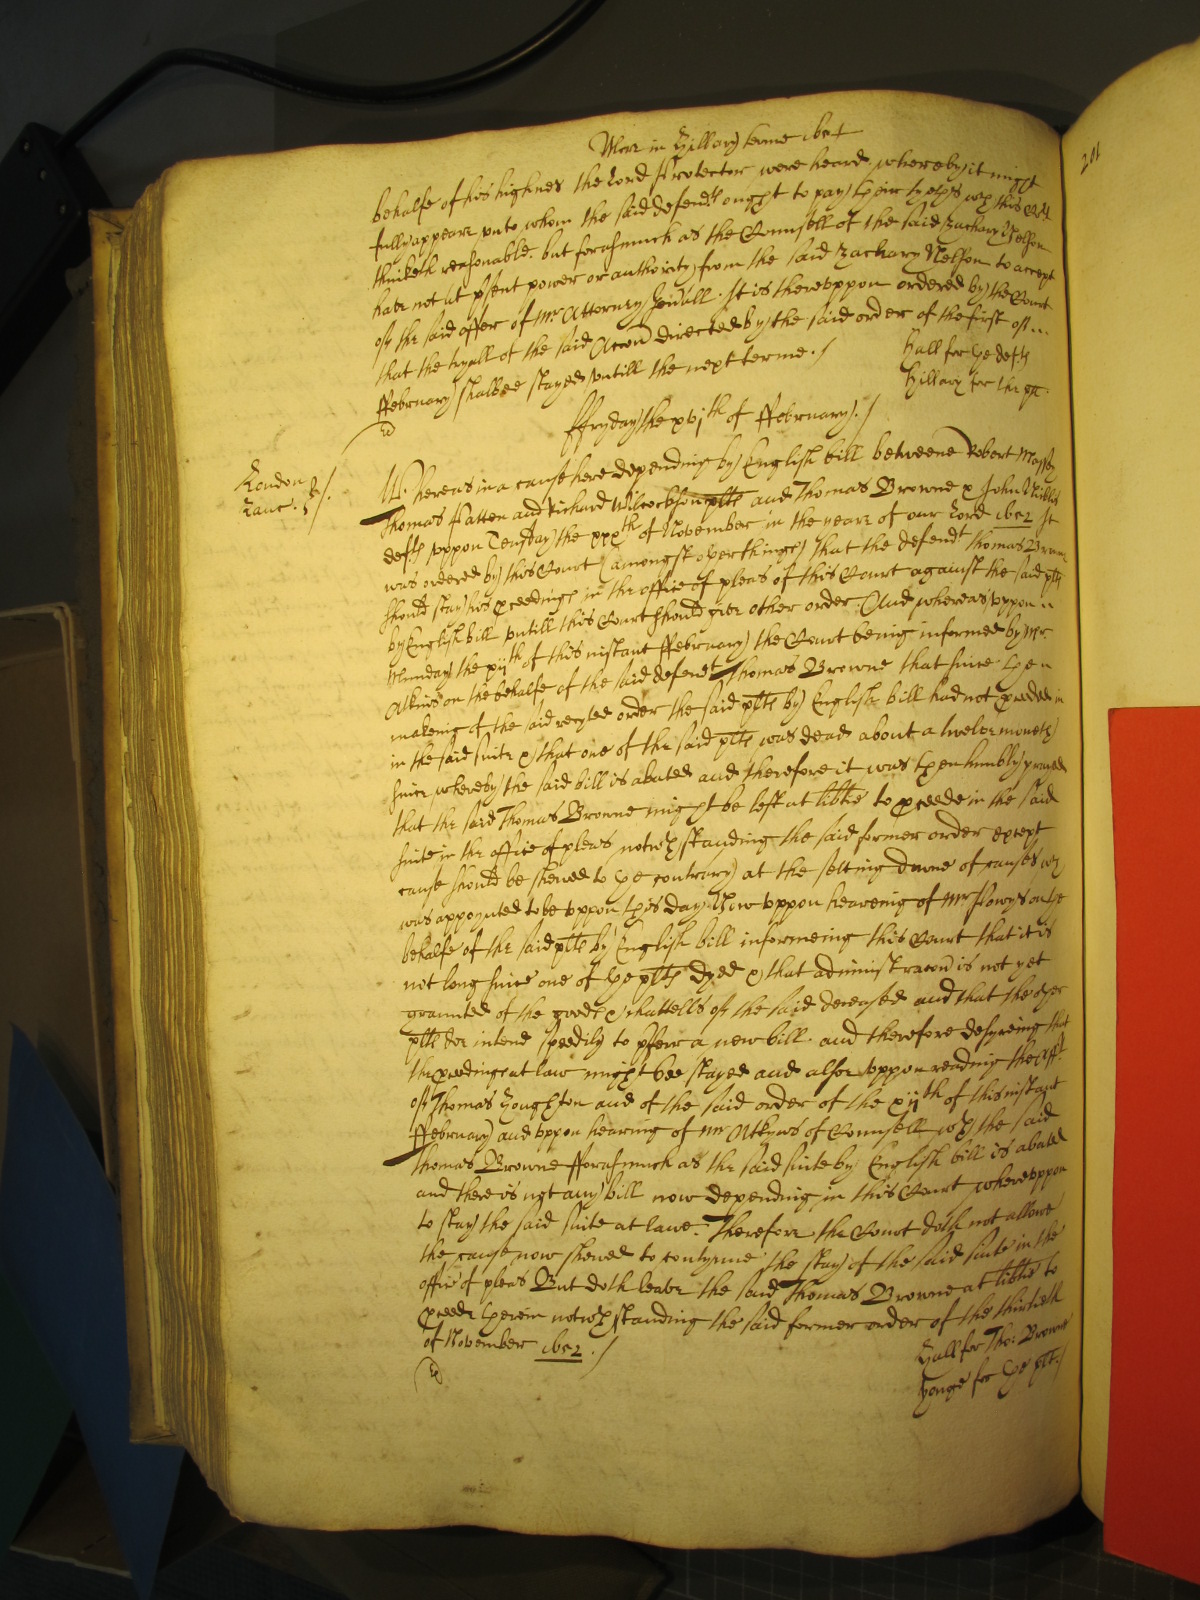 More in Hillary terme 1654
201
behalfe of his highnes the Lord Protector were heard whereby it might
fully appeare unto whom the said defendts ought to pay their tythes wch this Cort
thinketh reasonable. but forasmuch as the Counsell of the said Zachary Nelson
have not at psent power or authority from the said Zachary Nelson to accept
of the said offer of mr Attorney Generall. It is thereuppon ordered by the Court
that the tryall of the said Accon directed by the said order of the first of ...
ffebruary shalbee stayed untill the next terme ./
Hall for the defts
Hillary for the plt.
ffryday the xvjth of ffebruary ./
London
Lanc.
Whereas in a cause here depending by English bill betweene Robert Massy
Thomas Patten and Richard Wilcockson plts and Thomas Browne & John
defts uppon Teusday the xxxth of November in the yeare of our Lord 1652 It
was ordered by this Court (amongst other things) that the defendt Thomas Browne
should stay his pceedings in the office of pleas of this Court against the said plts
by English bill untill this Court should give other order. And whereas uppon
Munday the xijth of this instant ffebruary the Court being informed by Mr
Atkins on the behalfe of the said defendt Thomas Browne that since the
makeing of the said recyted order the said plts by English bill had not pceeded in
in the said suite & that one of the said plts was dead about a twelve moneth
since whereby the said bill is abated and therefore it was then humbly prayed
that the said Thomas Browne might be left at libtie to pceede in the said
suite in the office of pleas notwthstanding the said former order except
cause should be shewed to the contrary at the setting downe of causes wch
was appoynted to be uppon this day Now uppon heareing of Mr Powys on the
behalfe of the said plts by English bill informeing this Court that it is
not long since one of the plts dyed & that administracon is not yet
graunted of the goods & chattells of the said deceased and that the other
plts doe intend speedily to pferr a new bill. and therefore desyreing that
the pceedings at law might bee stayed and alsoe uppon reading the Afft
of Thomas Houghton and of the said order of the xijth of this instant
ffebruary and uppon hearing of mr Atkyns of Counsell wth the said
Thomas Browne fforasmuch as the said suite by English bill is abated
and there is not any bill now depending in this Court whereuppon
to stay the said suite at lawe. Therefore the Court doth not allowe
the cause now shewed to contynue the stay of the said suite in the
office of pleas But doth leave the said Thomas Browne at libtie to
pceede therein notwthstanding the said former order of the thirtieth
of November 1652 ./
Hall for Tho: Browne
Yonge for the plts./